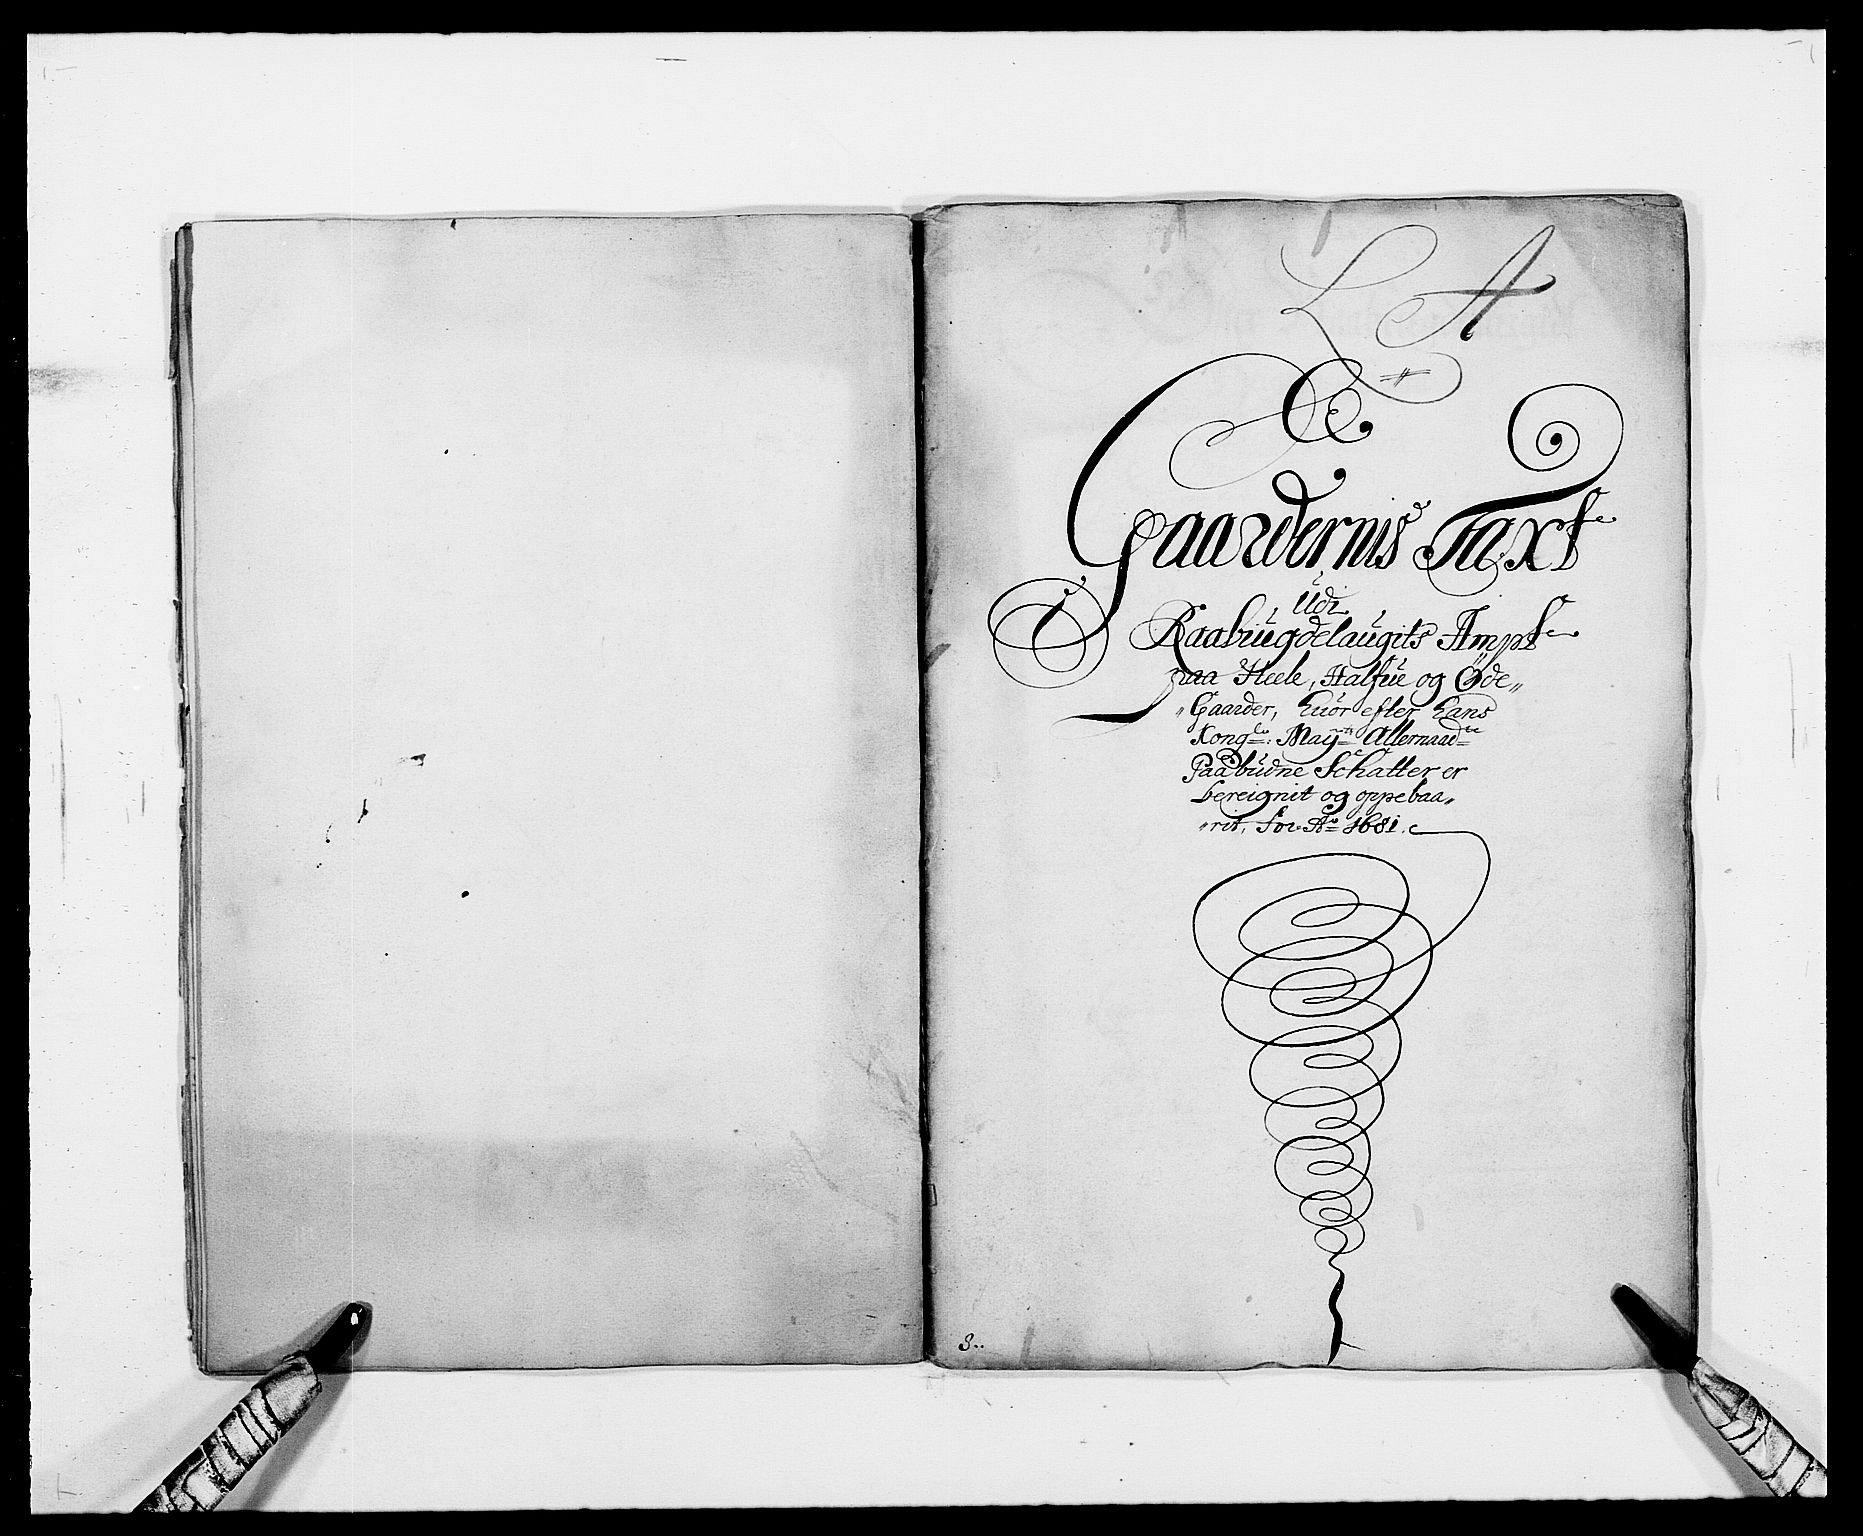 L A
Gaardernis Taxt
Udi
Raabÿgdelaugits Ampt
paa Heele, Halfue og Öde„
„Gaarder, huor efter hans
Kong: May Allernaad
Paabudne Schatter er
bereignit og oppebaa„
„rit, for Ao 1681.
3..